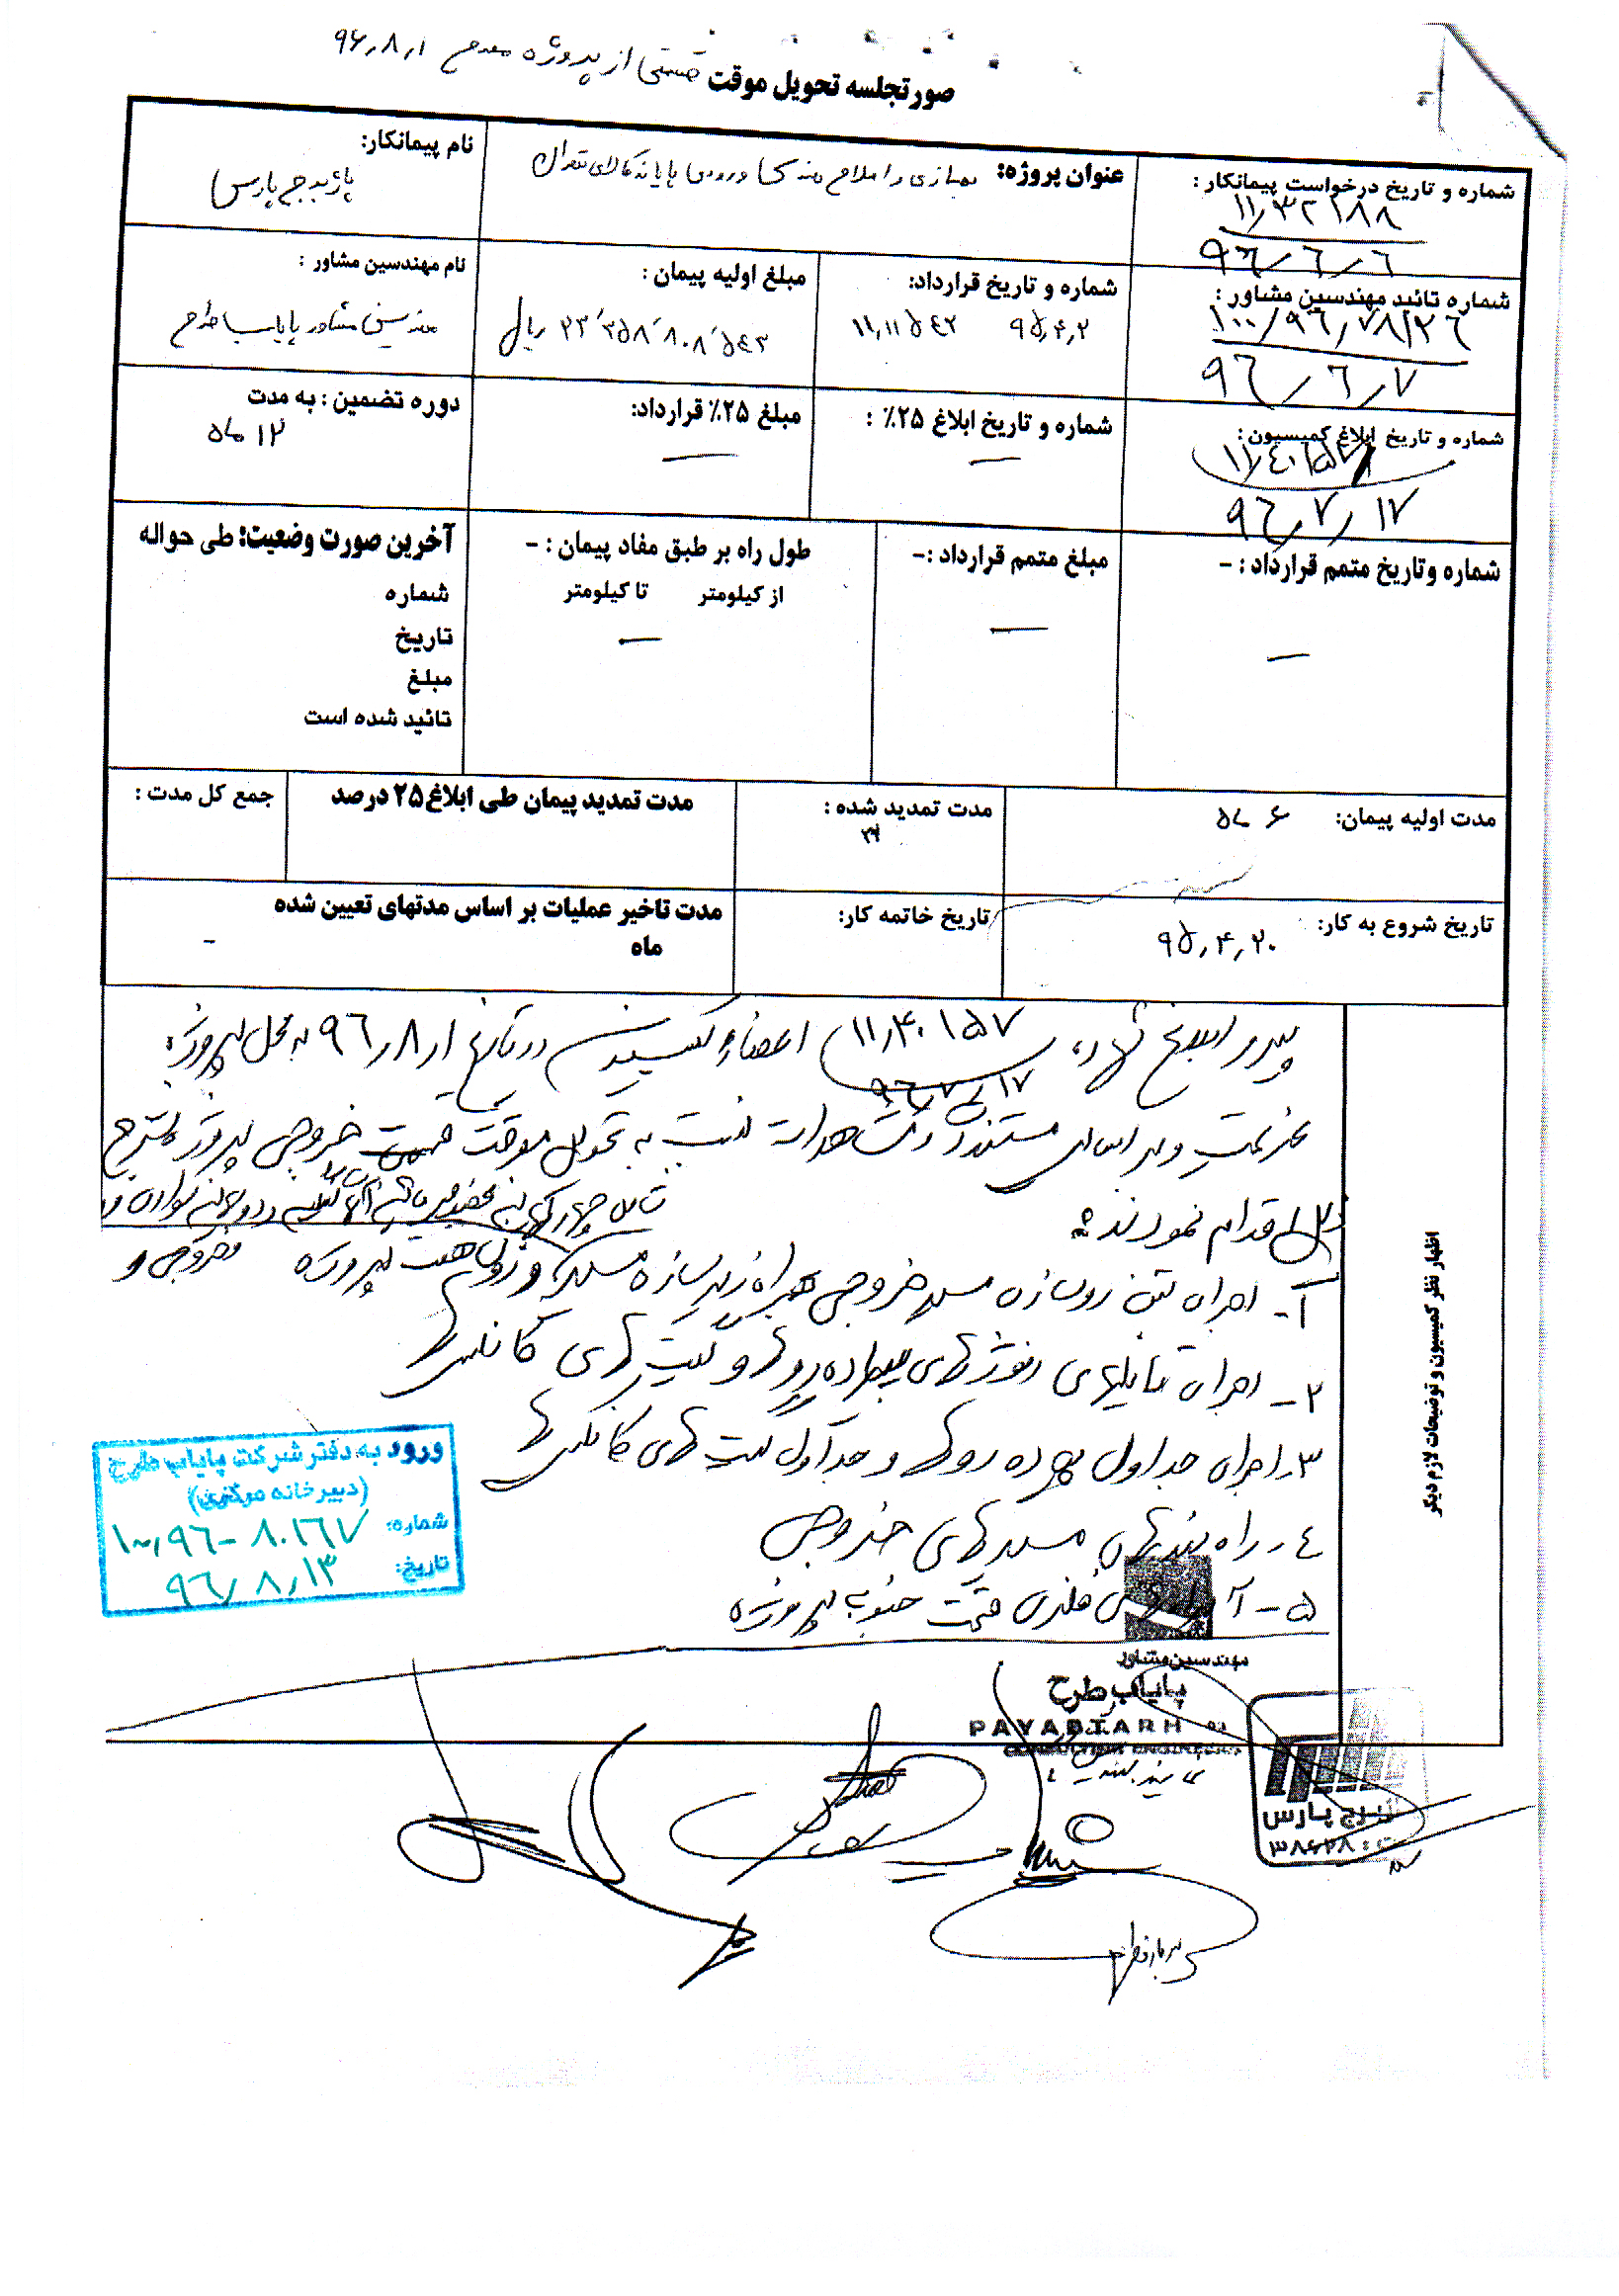 صورتجلسه تحویل موقت قسمتی از پروژه مورخ ۹۶٫۸٫۱
شماره و تاریخ درخواست پیمانکار:
۱۱٫۳۲۱۸۸
۹۶٫۶٫۶
عنوان پروژه: بهسازی و اصلاح هندسی ورودی پایانه کالای تهران
نام پیمانکار:
پاژ برج پارس
شماره تائید مهندسین مشاور:
۱۰۰٫۹۶٫۷۸۱۲۶
۹۶٫۶٫۷
شماره و تاریخ قرارداد:
۹۵٫۴٫۲ ۱۱٫۱۱۵۴۲
مبلغ اولیه پیمان:
۲۳٬۳۵۸٬۸۰۸٬۵۴۳ ریال
نام مهندسین مشاور:
مهندسین مشاور پایاب طرح
شماره و تاریخ ابلاغ کمیسیون:
۱۱٫۴۰۱۵۷
۹۶٫۷٫۱۷
شماره و تاریخ ابلاغ ۲۵٪:
—
مبلغ ۲۵٪ قرارداد:
—
دوره تضمین: به مدت
۱۲ ماه
شماره وتاریخ متمم قرارداد: -
—
مبلغ متمم قرارداد:-
—
طول راه بر طبق مفاد پیمان: -
از کیلومتر تا کیلومتر
—
آخرین صورت وضعیت: طی حواله
شماره
تاریخ
مبلغ
تائید شده است
مدت اولیه پیمان: ۶ ماه
مدت تمدید شده:
مدت تمدید پیمان طی ابلاغ ۲۵ درصد
جمع کل مدت:
تاریخ شروع به کار: ۹۵٫۴٫۲۰
تاریخ خاتمه کار:
مدت تاخیر عملیات بر اساس مدتهای تعیین شده
ماه -
اظهار نظر کمیسیون و توضیحات لازم دیگر
پیرو ابلاغ شماره ۱۱٫۴۰۱۵۷ اعضاء کمیسیون در تاریخ ۹۶٫۸٫۱ به محل پروژه
۹۶٫۷٫۱۷
عزیمت و بر اساس مستندات و مشاهدات نسبت به تحویل موقت قسمت خروجی پروژه بشرح
ذیل اقدام نمودند:
۱- اجرای بتن روسازه مسیر خروجی همراه زیرسازه مسیر و پروژه خروجی و
۲- اجرای تایلهای پیاده روها و گیت های کانکس ها
۳- اجرای جداول پیاده روها و جداول گیت های کانکس ها
۴- راه بندهای مسیرهای خروجی
۵- فلزی قسمت جنوب پروژه
ورود به دفتر شرکت پایاب طرح
(دبیرخانه مرکزی)
شماره: ۱۰۰٫۹۶-۸۰۱۶۷
تاریخ: ۹۶٫۸٫۱۳
مهندسین مشاور
پایاب طرح
PAYAB TARH
CONSULTING ENGINEERS
برج پارس
۳۸۶۲۸